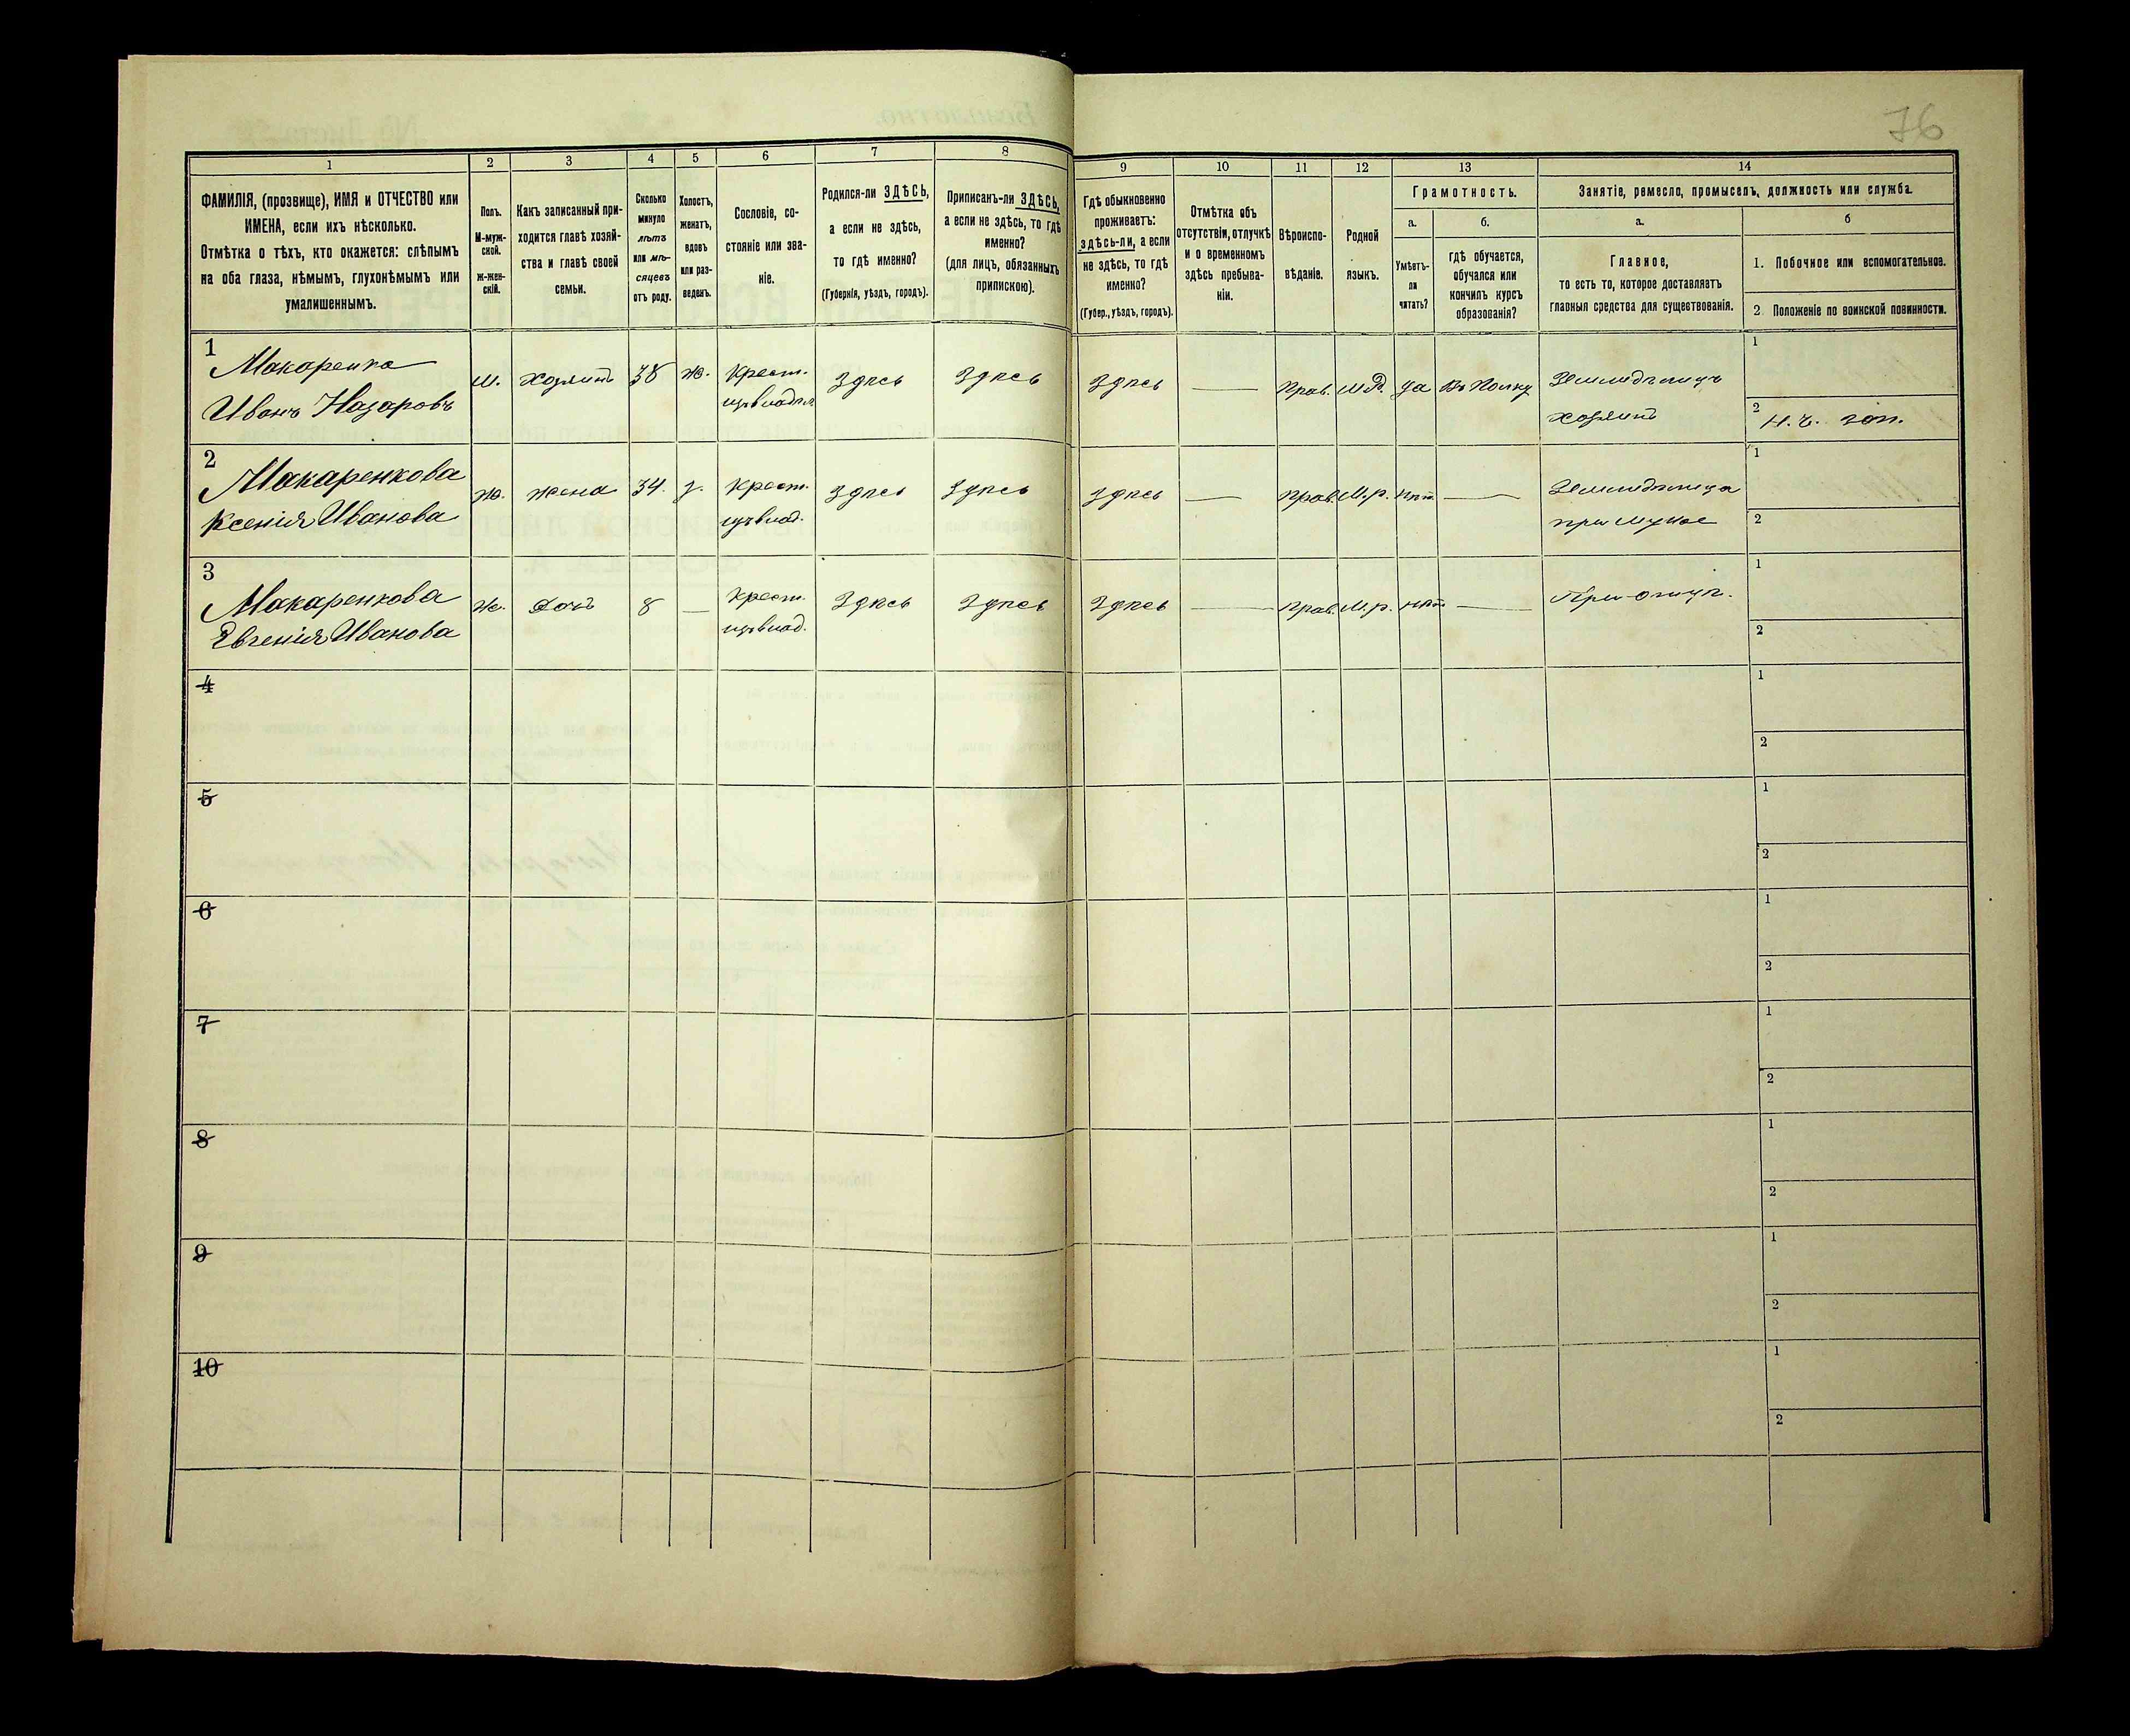 76
1 2 3 4 5 6 7 8 9 10 11 12 13 14
ФАМИЛІЯ, (прозвище), ИМЯ и ОТЧЕСТВО или
ИМЕНА, если ихъ нѣсколько.
Отмѣтка о тѣхъ, кто окажется: слѣпымъ
на оба глаза, нѣмымъ, глухонѣмымъ или
умалишеннымъ.
Полъ.
М-муж-
ской.
Ж-жен-
скій.
Какъ записанный при-
ходится главѣ хозяй-
ства и главѣ своей
семьи.
Сколько
минуло
лѣтъ
или мѣ-
сяцевъ
отъ роду.
Холостъ,
женатъ,
вдовъ
или раз-
веденъ.
Сословіе, со-
стояніе или зва-
ніе.
Родился-ли ЗДѢСЬ,
а если не здѣсь,
то гдѣ именно?
(Губернія, уѣздъ, городъ).
Приписанъ-ли ЗДѢСЬ,
а если не здѣсь, то гдѣ
именно?
(для лицъ, обязанныхъ
припискою).
Гдѣ обыкновенно
проживаетъ:
здѣсь-ли, а если
не здѣсь, то гдѣ
именно?
(Губер., уѣздъ, городъ).
Отмѣтка объ
отсутствіи, отлучкѣ
и о временномъ
здѣсь пребыва-
ніи.
Вѣроиспо-
вѣданіе.
Родной
языкъ.
Грамотность.
а.
Умѣетъ-
ли
читать?
б.
гдѣ обучается,
обучался или
кончилъ курсъ
образованія?
Занятіе, ремесло, промыселъ, должность или служба.
а.
Главное,
то есть то, которое доставляетъ
главныя средства для существованія.
б
1. Побочное или вспомогательное.
2. Положеніе по воинской повинности.
1
Макаренко м. хозяинъ 38 ж. Крест. Здѣсь Здѣсь Здѣсь — Прав. М.Р. да Въ Полку Земледѣлецъ 1
Иванъ Назаровъ хозяинъ 2
2
Макаренкова ж. жена 34. з. Крест. Здѣсь Здѣсь Здѣсь — Прав. М.р. нѣт — Земледѣлица 1
Ксенія Иванова при мужѣ 2
3
Макаренкова ж. Дочь 8 — Крест. Здѣсь Здѣсь Здѣсь — Прав. М.р. нѣт — При отцѣ. 1
Евгенія Иванова 2
4 1
2
5 1
2
6 1
2
7 1
2
8 1
2
9 1
2
10 1
2